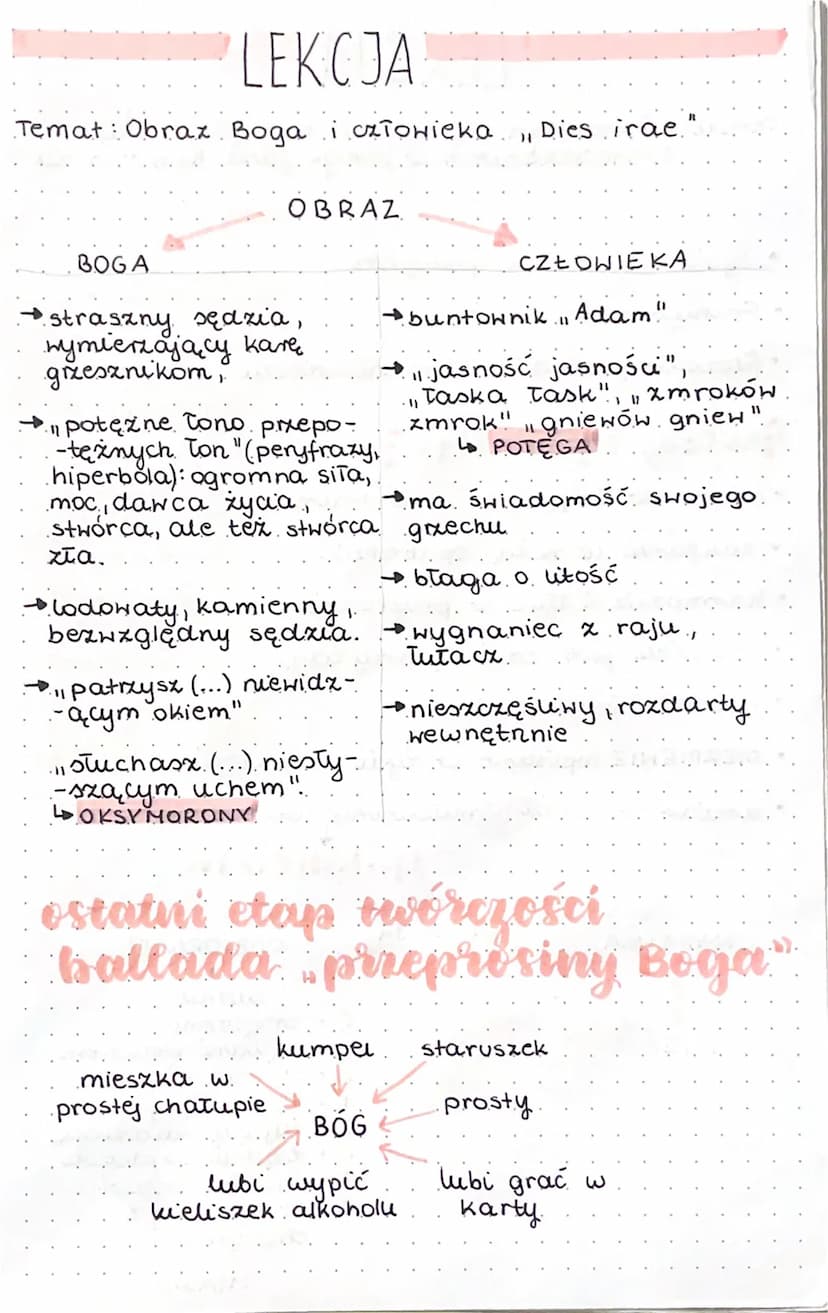 LEKCJA
Temat: Obraz Boga i człowieka „Dies irae."
OBRAZ
BOGA
→ straszny sędzia,
wymierzający karę
grzesznikom,
→ „potężne łono przepo-
-tężnych łon" (peryfrazy,
hiperbola): ogromna siła,
moc, dawca życia,
stwórca, ale też stwórca
zła.
→ lodowaty, kamienny,
bezwzględny sędzia.
→ „patrzysz (...) niewidz-
-ącym okiem"
„słuchasz (...) niesły-
-szącym uchem".
↳ OKSYMORONY
CZŁOWIEKA
→ buntownik „Adam"
→ „jasność jasności",
„łaska łask", „zmroków
zmrok" „gniewów gniew"
↳ POTĘGA
→ ma świadomość swojego
grzechu
→ błaga o litość
→ wygnaniec z raju,
tułacz
→ nieszczęśliwy, rozdarty
wewnętrznie
ostatni etap twórczości
ballada „przeprosiny Boga"
kumpel
staruszek
mieszka w
prostej chałupie
prosty
BÓG
lubi wypić
kieliszek alkoholu
lubi grać w
karty